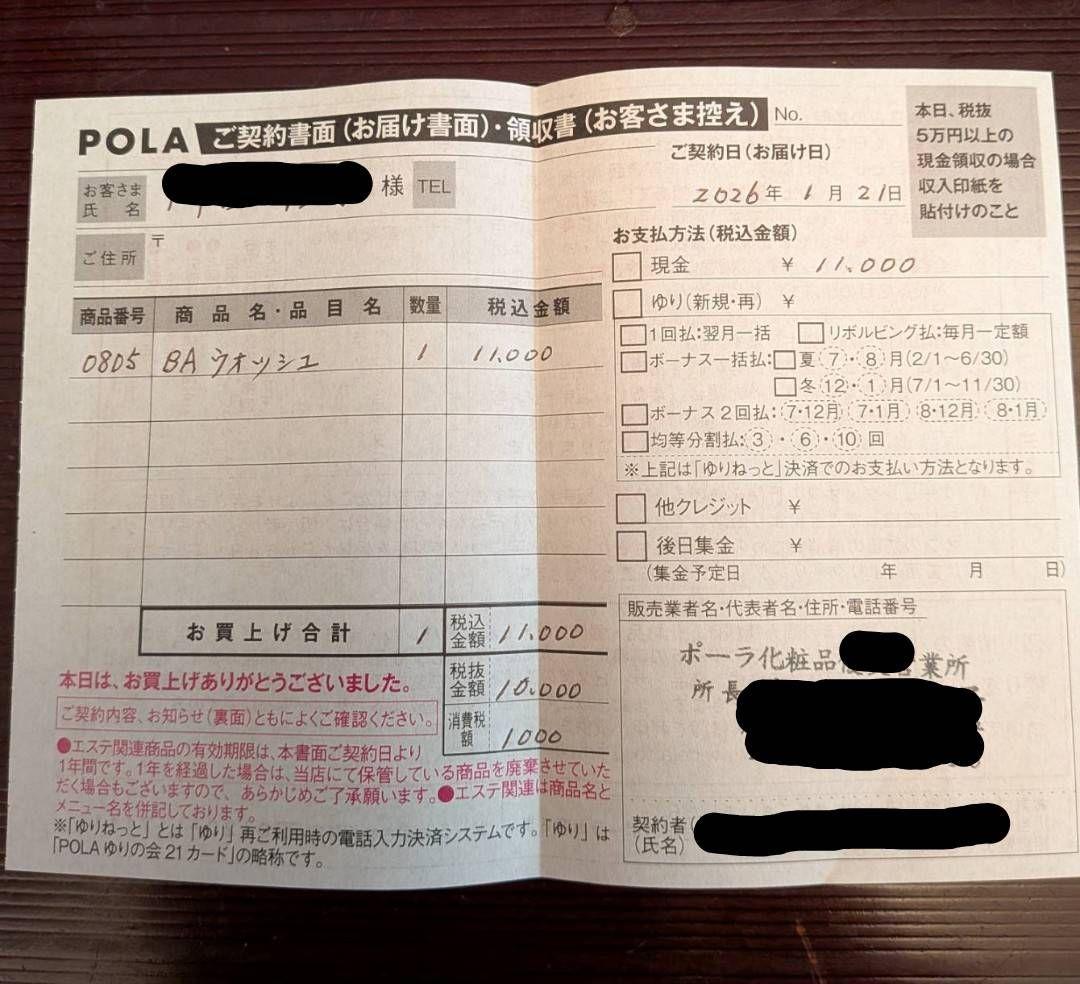 POLA ご契約書面(お届け書面)・領収書(お客さま控え) No.
お客さま
氏 名
様 TEL
ご住所 〒
ご契約日(お届け日)
2026年 1月 21日
本日、税抜
5万円以上の
現金領収の場合
収入印紙を
貼付けのこと
商品番号 商品名・品目名 数量 税込金額
0805 BA ウォッシュ 1 11.000
お買上げ合計 1 税込金額 11.000
税抜金額 10.000
消費税額 1000
お支払方法(税込金額)
現金 ¥ 11.000
ゆり(新規・再) ¥
1回払:翌月一括 リボルビング払:毎月一定額
ボーナス一括払: 夏 7・8月(2/1〜6/30)
冬 12・1月(7/1〜11/30)
ボーナス2回払: 7・12月 7・1月 8・12月 8・1月
均等分割払: 3・6・10 回
※上記は「ゆりねっと」決済でのお支払い方法となります。
他クレジット ¥
後日集金 ¥
(集金予定日 年 月 日)
販売業者名・代表者名・住所・電話番号
ポーラ化粧品 営業所
所長
契約者(
(氏名)
本日は、お買上げありがとうございました。
ご契約内容、お知らせ(裏面)ともによくご確認ください。
●エステ関連商品の有効期限は、本書面ご契約日より
1年間です。1年を経過した場合は、当店にて保管している商品を廃棄させていた
だく場合もございますので、あらかじめご了承願います。●エステ関連は商品名と
メニュー名を併記しております。
※「ゆりねっと」とは「ゆり」再ご利用時の電話入力決済システムです。「ゆり」は
「POLAゆりの会21カード」の略称です。